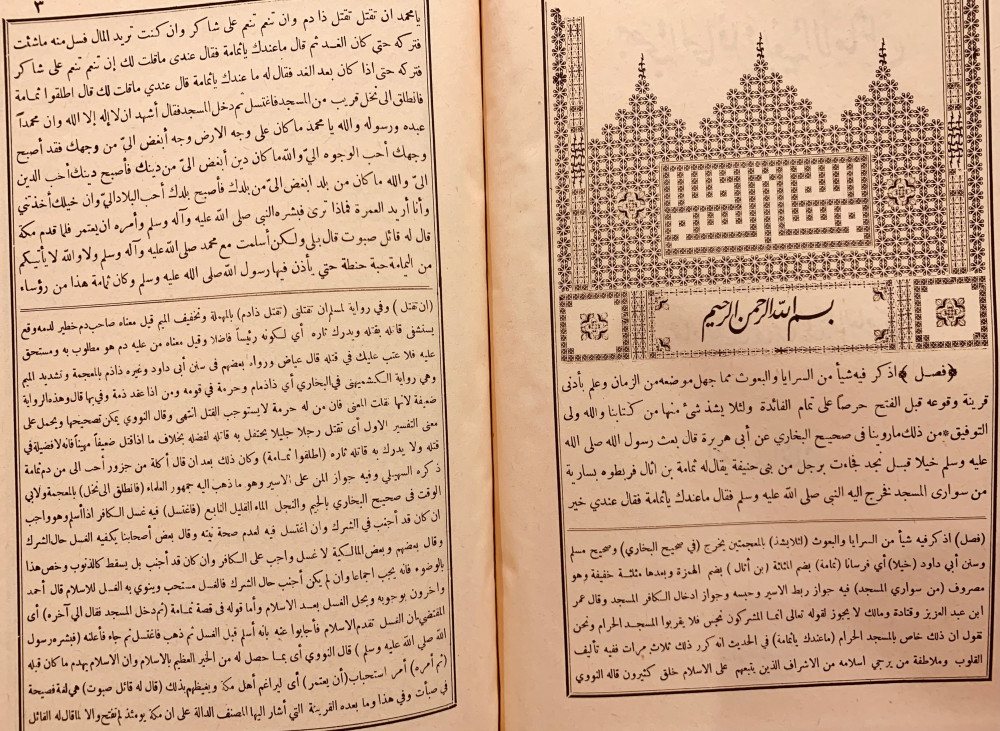 بسم الله الرحمن الرحيم
﴿فصل﴾ اذكر فيه شيأ من السرايا والبعوث مما جهل موضعه من الزمان وعلم بأدنى
قرينة وقوعه قبل الفتح حرصا على تمام الفائدة ولئلا يشذ شئ منها من كتابنا والله ولى
التوفيق * من ذلك ماروينا فى صحيح البخاري عن أبى هريرة قال بعث رسول الله صلى الله
عليه وسلم خيلا قبل نجد فجاءت برجل من بنى حنيفة يقال له ثمامة بن اثال فربطوه بسارية
من سوارى المسجد فخرج اليه النبى صلى الله عليه وسلم فقال ماعندك ياثمامة فقال عندي خير
(فصل) اذكر فيه شيأ من السرايا والبعوث (لئلا يشذ) بالمعجمتين يخرج (في صحيح البخاري) وصحيح مسلم
وسنن أبي داود (خيلا) أي فرسانا (ثمامة) بضم المثلثة (بن أثال) بضم الهمزة وبعدها مثلثة خفيفة وهو
مصروف (من سواري المسجد) فيه جواز ربط الاسير وحبسه وجواز ادخال الكافر المسجد وقال عمر
ابن عبد العزيز وقتادة ومالك لا يجوز لقوله تعالى انما المشركون نجس فلا يقربوا المسجد الحرام ونحن
نقول ان ذلك خاص بالمسجد الحرام (ماعندك ياثمامة) في الحديث انه كرر ذلك ثلاث مرات ففيه تأليف
القلوب وملاطفة من يرجي اسلامه من الاشراف الذين يتبعهم على الاسلام خلق كثيرون قاله النووي
٣
يامحمد ان تقتل تقتل ذا دم وان تنعم تنعم على شاكر وان كنت تريد المال فسل منه ماشئت
فتركه حتى كان الغد ثم قال ماعندك ياثمامة فقال عندى ماقلت لك إن تنعم تنعم على شاكر
فتركه حتى اذا كان بعد الغد فقال له ما عندك ياثمامة قال عندي ماقلت لك قال اطلقوا ثمامة
فانطلق الى نخل قريب من المسجد فاغتسل ثم دخل المسجد فقال أشهد ان لاإله إلا الله وان محمداً
عبده ورسوله والله يا محمد ماكان على وجه الارض وجه أبغض الىّ من وجهك فقد أصبح
وجهك أحب الوجوه الىّ والله ماكان دين أبغض الىّ من دينك فأصبح دينك أحب الدين
الىّ والله ماكان من بلد ابغض الىّ من بلدك فأصبح بلدك أحب البلاد الىّ وان خيلك أخذتنى
وأنا أريد العمرة فماذا ترى فبشره النبى صلى الله عليه وآله وسلم وأمره ان يعتمر فلما قدم مكة
قال له قائل صبوت قال بلى ولكن أسلمت مع محمد صلى الله عليه وآله وسلم ولا والله لا يأتيكم
من اليمامة حبة حنطة حتي يأذن فيها رسول الله صلى الله عليه وسلم وكان ثمامة هذا من رؤساء
(ان تقتل) وفي رواية لمسلم ان تقتلنى (تقتل ذا دم) بالمهملة وتخفيف الميم قيل معناه صاحب دم خطير لدمه وقع
يستشفى قاتله بقتله ويدرك ثاره أي لكونه رئيساً فاضلا وقيل معناه من عليه دم هو مطلوب به ومستحق
عليه فلا عتب عليك في قتله قال عياض ورواه بعضهم فى سنن أبى داود وغيره ذا ذم بالمعجمة وتشديد الميم
وهي رواية الكشميهنى في البخاري أي ذا ذمام وحرمة في قومه ومن اذا عقد ذمة وفي بها قال وهذه الرواية
ضعيفة لانها تقلب المعنى فان من له حرمة لا يستوجب القتل انتهى وقال النووي يمكن تصحيحها ويحمل على
معنى التفسير الاول أى تقتل رجلا جليلا يحتفل به قاتله لفضله بخلاف ما اذا قتل ضعيفاً مهيناً فانه لا فضيلة في
قتله ولا يدرك به قاتله ثاره (اطلقوا ثمامة) وكان ذلك بعد ان قال أكلة من جزور أحب الى من دم ثمامة
ذكره السهيلي وفيه جواز المن على الاسير وهو ما ذهب اليه جمهور العلماء (فانطلق الى نخل) بالمعجمة ولابي
الوقت فى صحيح البخارى بالجيم والنجل الماء القليل النابع (فاغتسل) فيه غسل الكافر اذا أسلم وهو واجب
ان كان قد أجنب في الشرك وان اغتسل فيه لعدم صحة نيته وقال بعض أصحابنا يكفيه الغسل حال الشرك
وقال بعضهم وبعض المالكية لا غسل واجب على الكافر وان كان قد أجنب بل يسقط كالذنوب وخص هذا
بالوضوء فانه يجب اجماعا وان لم يكن أجنب حال الشرك فالغسل مستحب وينوى به الغسل للاسلام قال أحمد
وآخرون بوجوبه ومحل الغسل بعد الاسلام وأما قوله فى قصة ثمامة (ثم دخل المسجد فقال الى آخره) أى
المقتضى بان الغسل تقدم الاسلام فأجابوا عنه بانه أسلم قبل الغسل ثم ذهب فاغتسل ثم جاء فأعلنه (فبشره رسول
الله صلى الله عليه وسلم) قال النووي أى بما حصل له من الخير العظيم بالاسلام وان الاسلام يهدم ما كان قبله
(ثم أمره) أمر استحباب (أن يعتمر) أى ليراغم أهل مكة ويغيظهم بذلك (قال له قائل صبوت) هي لغة فصيحة
في صبأت وفي هذا وما بعده القرينة التي أشار اليها المصنف الدالة على ان مكة يومئذ لم تفتح والا لما قال له القائل